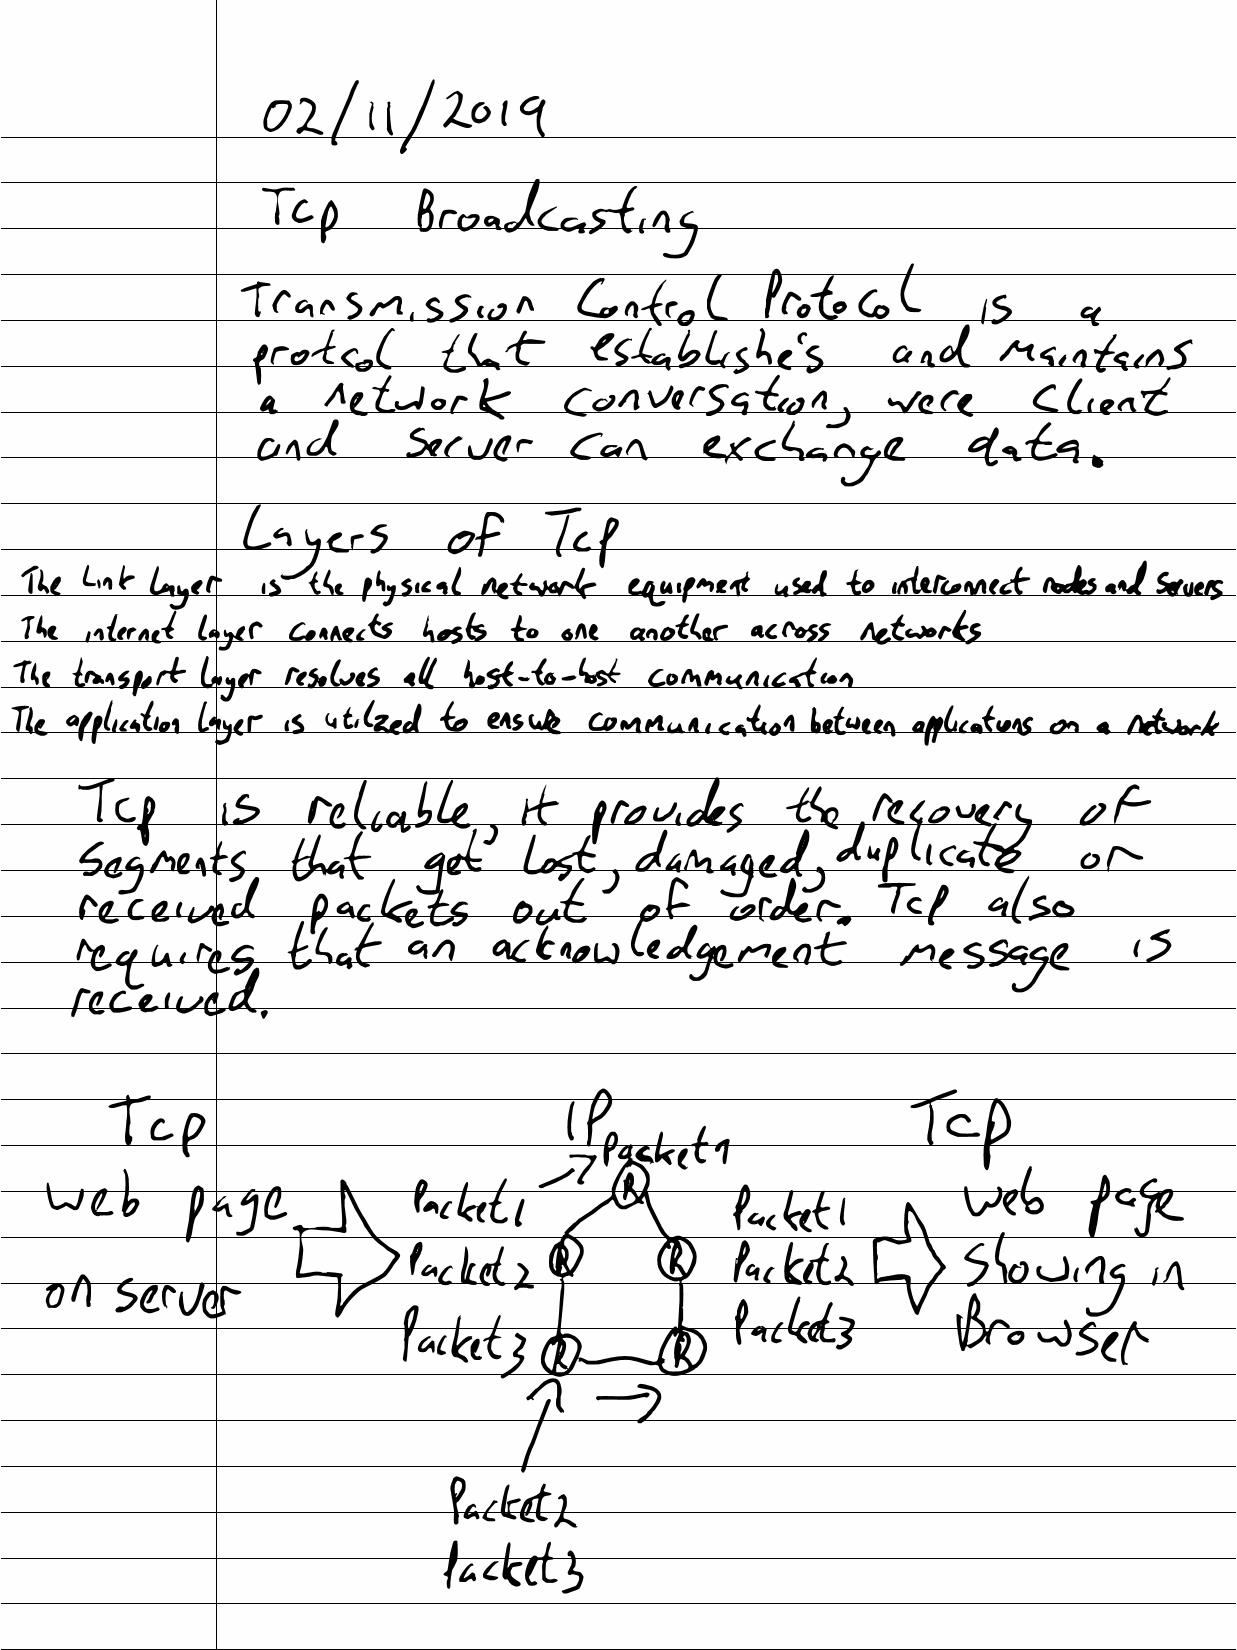 02/11/2019
Tcp Broadcasting
Transmission Control Protocol is a
protcol that establishe's and maintains
a network conversation, were client
and server can exchange data.
Layers of Tcp
The Link layer is the physical network equipment used to interconnect nodes and servers
The internet layer connects hosts to one another across networks
The transport layer resolves all host-to-host communication
The application layer is utilized to ensure communication between applications on a network
Tcp is reliable, it provides the recovery of
segments that get lost, damaged, duplicate or
received packets out of order. Tcp also
requires that an acknowledgement message is
received.
Tcp IP Tcp
Packet1
web page Packet1 R Packet1 web page
Packet2 R R Packet2 Showing in
on server Packet3 R R Packet3 Browser
Packet2
Packet3